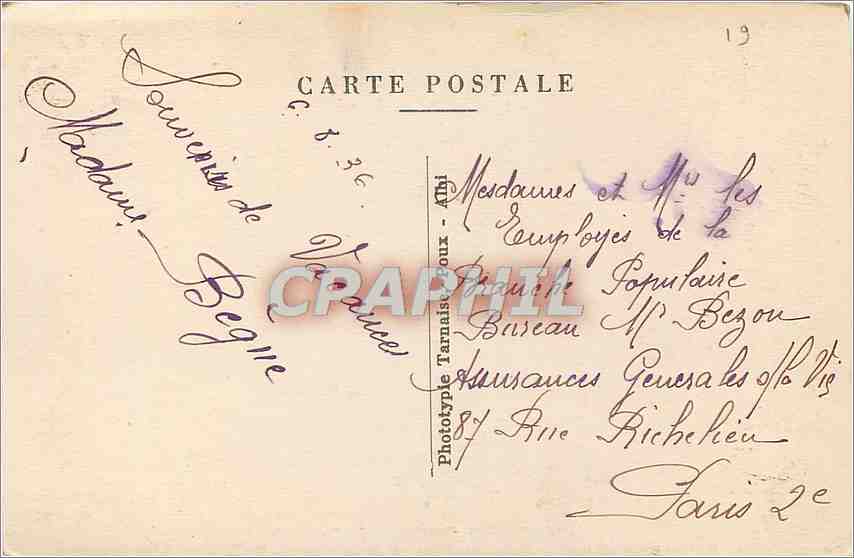 19
CARTE POSTALE
6. 8. 36.
Souvenirs de Vacances
Madame Begue
Phototypie Tarnaise Poux - Albi
Mesdames et Mrs les
Employés de la
Branche Populaire
Bureau Mr Bezon
Assurances Generales s/la Vie
87 Rue Richelieu
Paris 2e
CPAPHIL